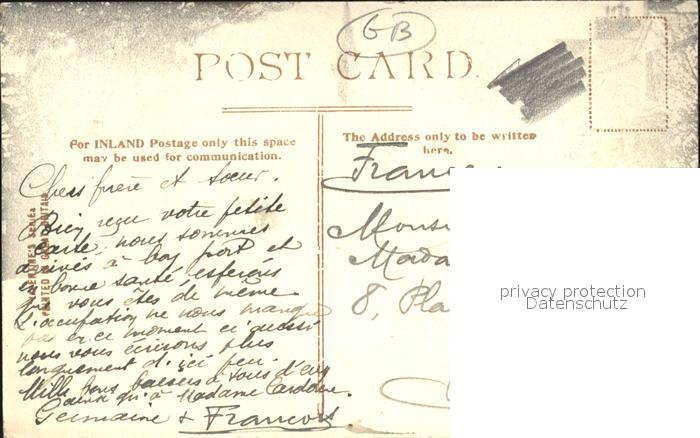 GB
POST CARD.
For INLAND Postage only this space
may be used for communication.
The Address only to be written
here.
Chers frère et soeur.
Bien reçu votre petite
carte, nous sommes
arrivés à bon port et
en bonne santé, espérons
que vous êtes de même.
L'occupation ne nous manque
pas en ce moment ci aussi
nous vous écrirons plus
longuement d'ici peu.
Mille bons baisers à vous d'eux
ainsi qu'à Madame
Germaine & François
France
Monsi
Mada
8, Pla
VALENTINE'S SERIES
PRINTED IN GREAT BRITAIN
privacy protection
Datenschutz